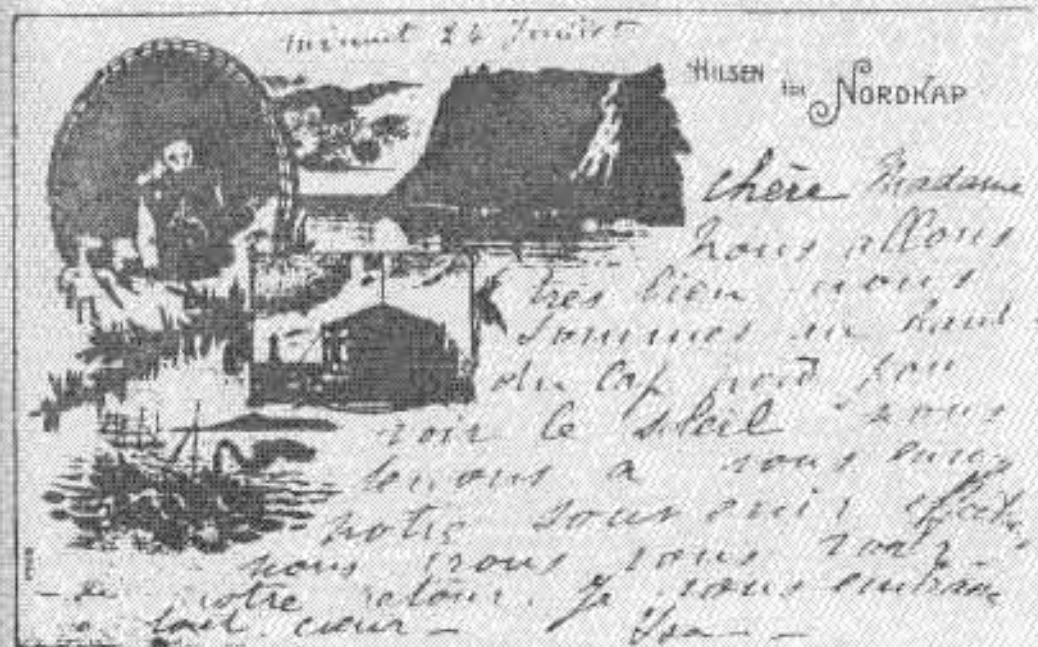 minuit 24 Juillet
HILSEN fra NORDKAP
chère Madame
nous allons
très bien nous
sommes en haut
du Cap nord pour
voir le soleil nous
tenons à vous envoy
notre souvenir affectu
nous irons vous voir
à notre retour. Je vous embrasse
de tout cœur —